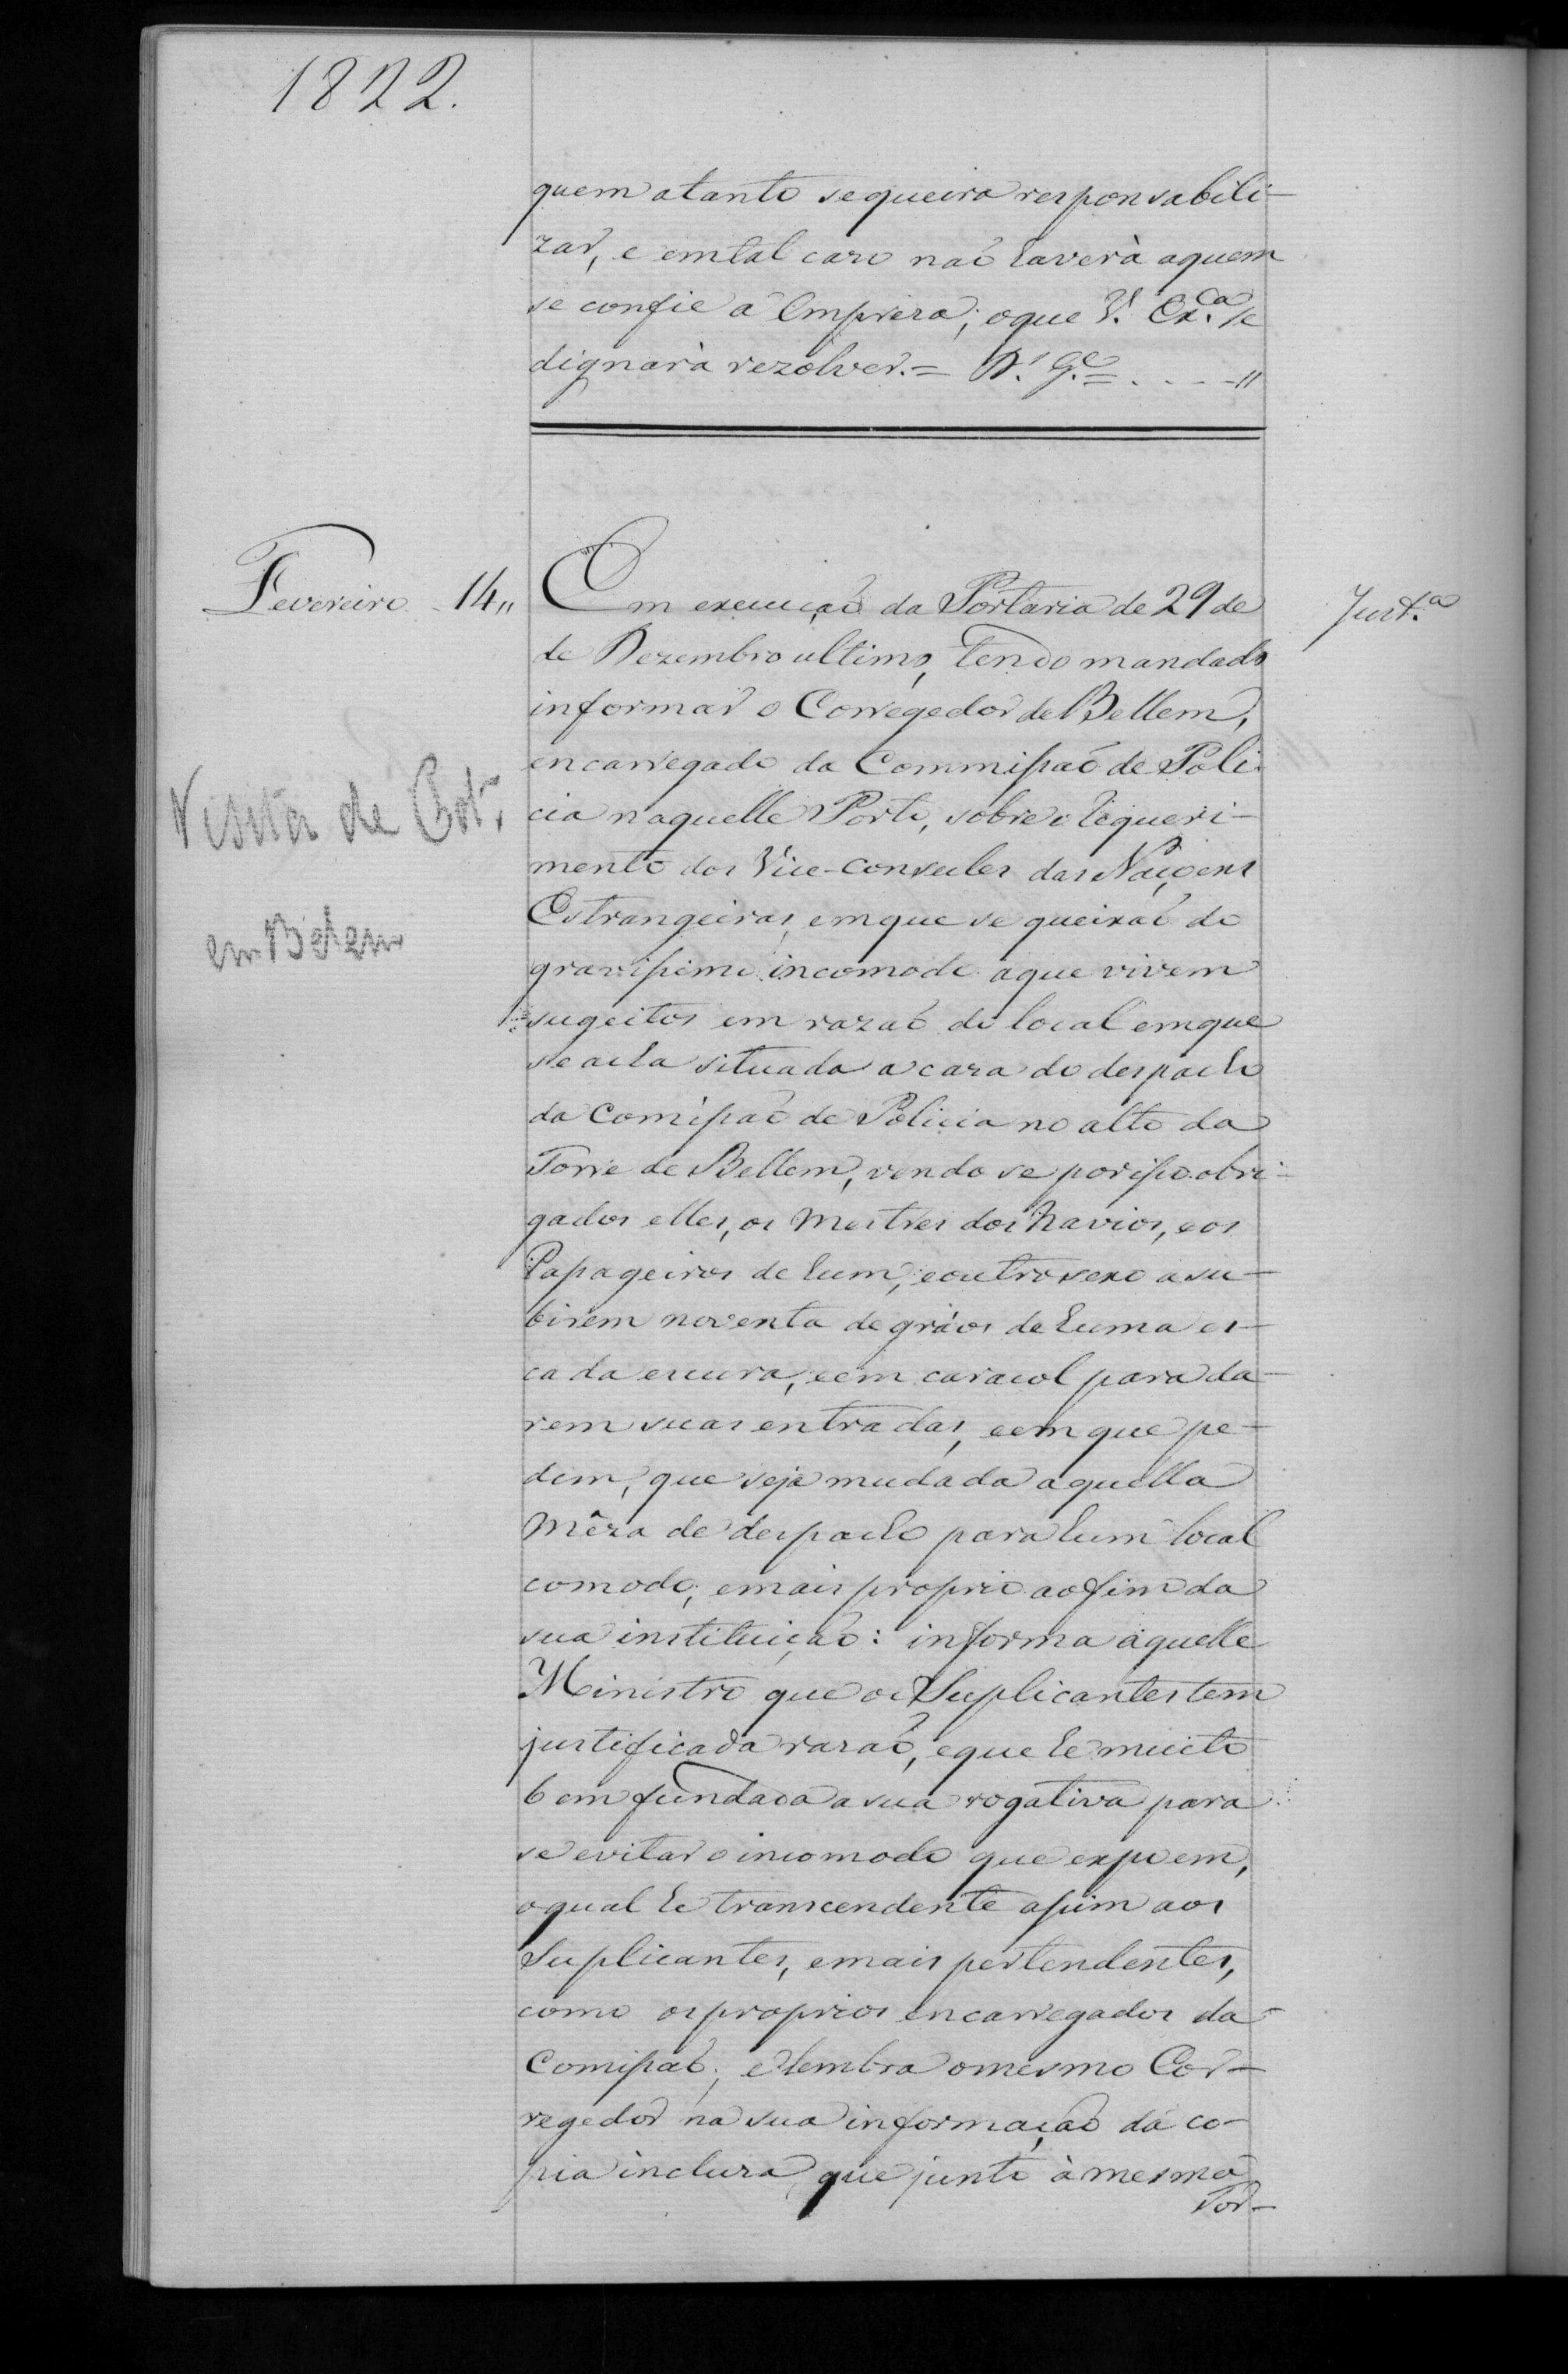 1822.
quem a tanto se queira responsabili-
zar, e em tal caso naõ haverà a quem
se confie a Empreza; o que V. Ex.ca se
dignarà rezolver. = D.s G.e = . . . - "
Fevereiro 14"
Em execuçaõ da Portaria de 29 de
Just.a
de Dezembro ultimo, tendo mandado
informar o Corregedor de Bellem,
encarregado da Commissaõ de Poli-
Visita de
cia naquelle Porto, sobre o requeri-
mento dos Vice-Consules das Naçoens
Estrangeiras, em que se queixaõ do
em Belem
gravissimo incomodo a que vivem
sugeitos em razaõ do local em que
se acha situada a caza do despacho
da Comissaõ de Policia no alto da
Torre de Bellem, vendo se por isso obri-
gados elles, os Mestres dos Navios, e os
Passageiros de hum, e outro sexo a su-
birem noventa degráos de huma es-
cada escura, e em caracol para da-
rem suas entradas, e em que pe-
dem, que seja mudada aquella
Mêza de despacho para hum local
comodo, e mais proprio ao fim da
sua instituiçaõ: informa aquelle
Ministro que os Suplicantes tem
justificada razaõ, e que he muito
bem fundada a sua rogativa para
se evitar o incomodo que expoem,
o qual he transcendente assim aos
Suplicantes, e mais pertendentes,
como os proprios encarregados da
Comissaõ; e lembra o mesmo Cor-
regedor na sua informaçaõ da co-
pia incluza, que junto à mesma
Tor-